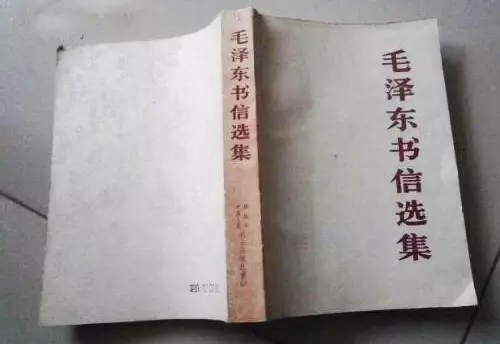 毛泽东书信选集
毛泽东书信选集